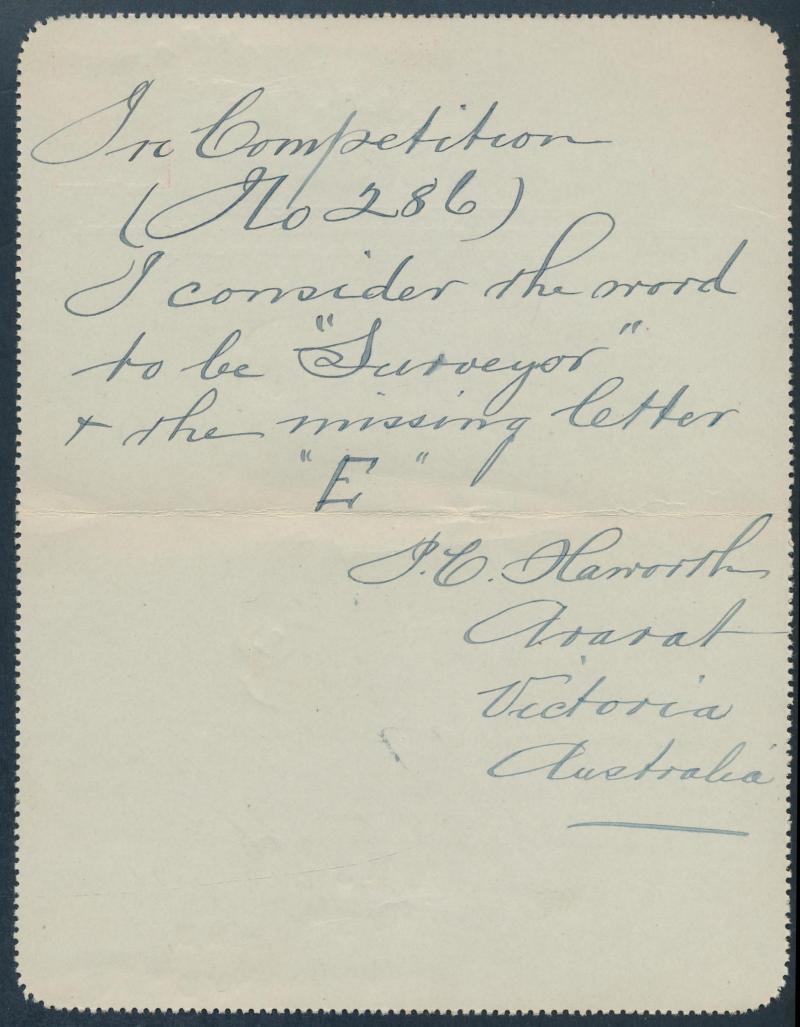 In Competition
(No 286)
I consider the word
to be "Surveyor"
+ the missing letter
"E"
J. C. Haworth
Ararat
Victoria
Australia